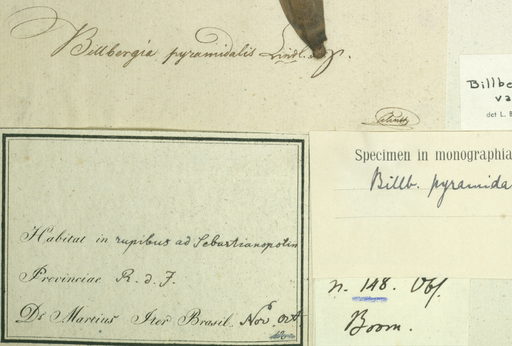 Billbergia pyramidalis Lindl.
Billbe
va
det L. B
Specimen in monographia
Billb. pyramida
Habitat in rupibus ad Sebastianopolin
Provinciae R. d. J.
Dr Martius Iter Brasil. Nov. Oct
n. 148. Obs.
Boom.